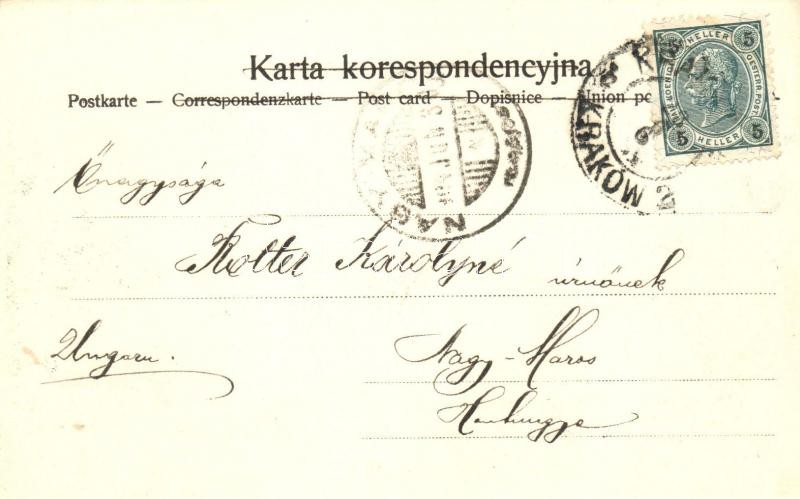 Karta korespondencyjna
Postkarte — Correspondenzkarte — Post card — Dopisnice — Union po
5 HELLER 5
5 HELLER 5
KRAKÓW
NAGY
Őnagysága
Károlyné úrnőnek
Ungarn.
Nagy-Maros